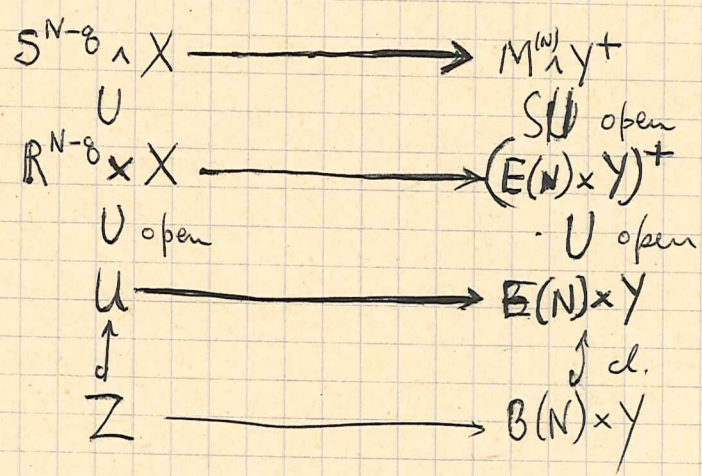 S^{N-q} ∧ X ⟶ M^{(N)} ∧ Y^+
∪ S∪ open
R^{N-q} × X ⟶ (E(N) × Y)^+
∪ open ∪ open
U ⟶ E(N) × Y
↑ ↑ cl.
Z ⟶ B(N) × Y